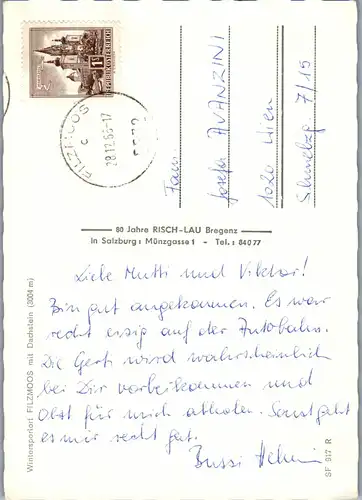 REPUBLIK ÖSTERREICH
FILZMOOS
28.12.66-17
c
Fam.
Josefa AVANZINI
1020 Wien
7/15
80 Jahre RISCH-LAU Bregenz
In Salzburg: Münzgasse 1 - Tel.: 84077
Liebe Mutti und Viktor!
Bin gut angekommen. Es war
recht eisig auf der Autobahn.
Die Gerti wird wahrscheinlich
bei Dir vorbeikommen und
Obst für mich abholen. Sonst geht
es mir recht gut.
Bussi Helmi
Wintersportort FILZMOOS mit Dachstein (3004 m)
SF 917 R